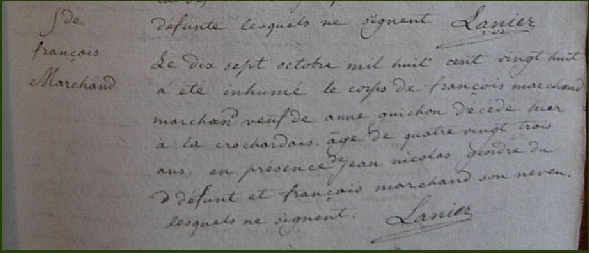 S de
françois
Marchand
défunte lesquels ne signent Lanier
Le dix sept octobre mil huit cent vingt huit
a été inhumé le corps de françois marchand
marchand veuf de anne guichon décédé hier
à la crochardais. âge de quatre vingt trois
ans, en présence de jean nicolas gendre du
d défunt et françois marchand son neveu.
lesquels ne signent. Lanier